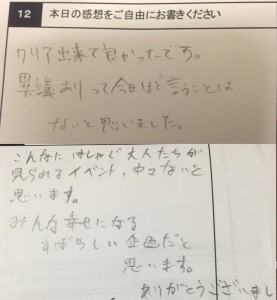 12 本日の感想をご自由にお書きください
クリア出来て良かったです。
異議ありって今日ほど言うことは
ないと思いました。
こんなにはしゃぐ大人たちが
見られるイベント、中々ないと
思います。
みんな幸せになる
すばらしい企画だと
思います。
ありがとうございまし